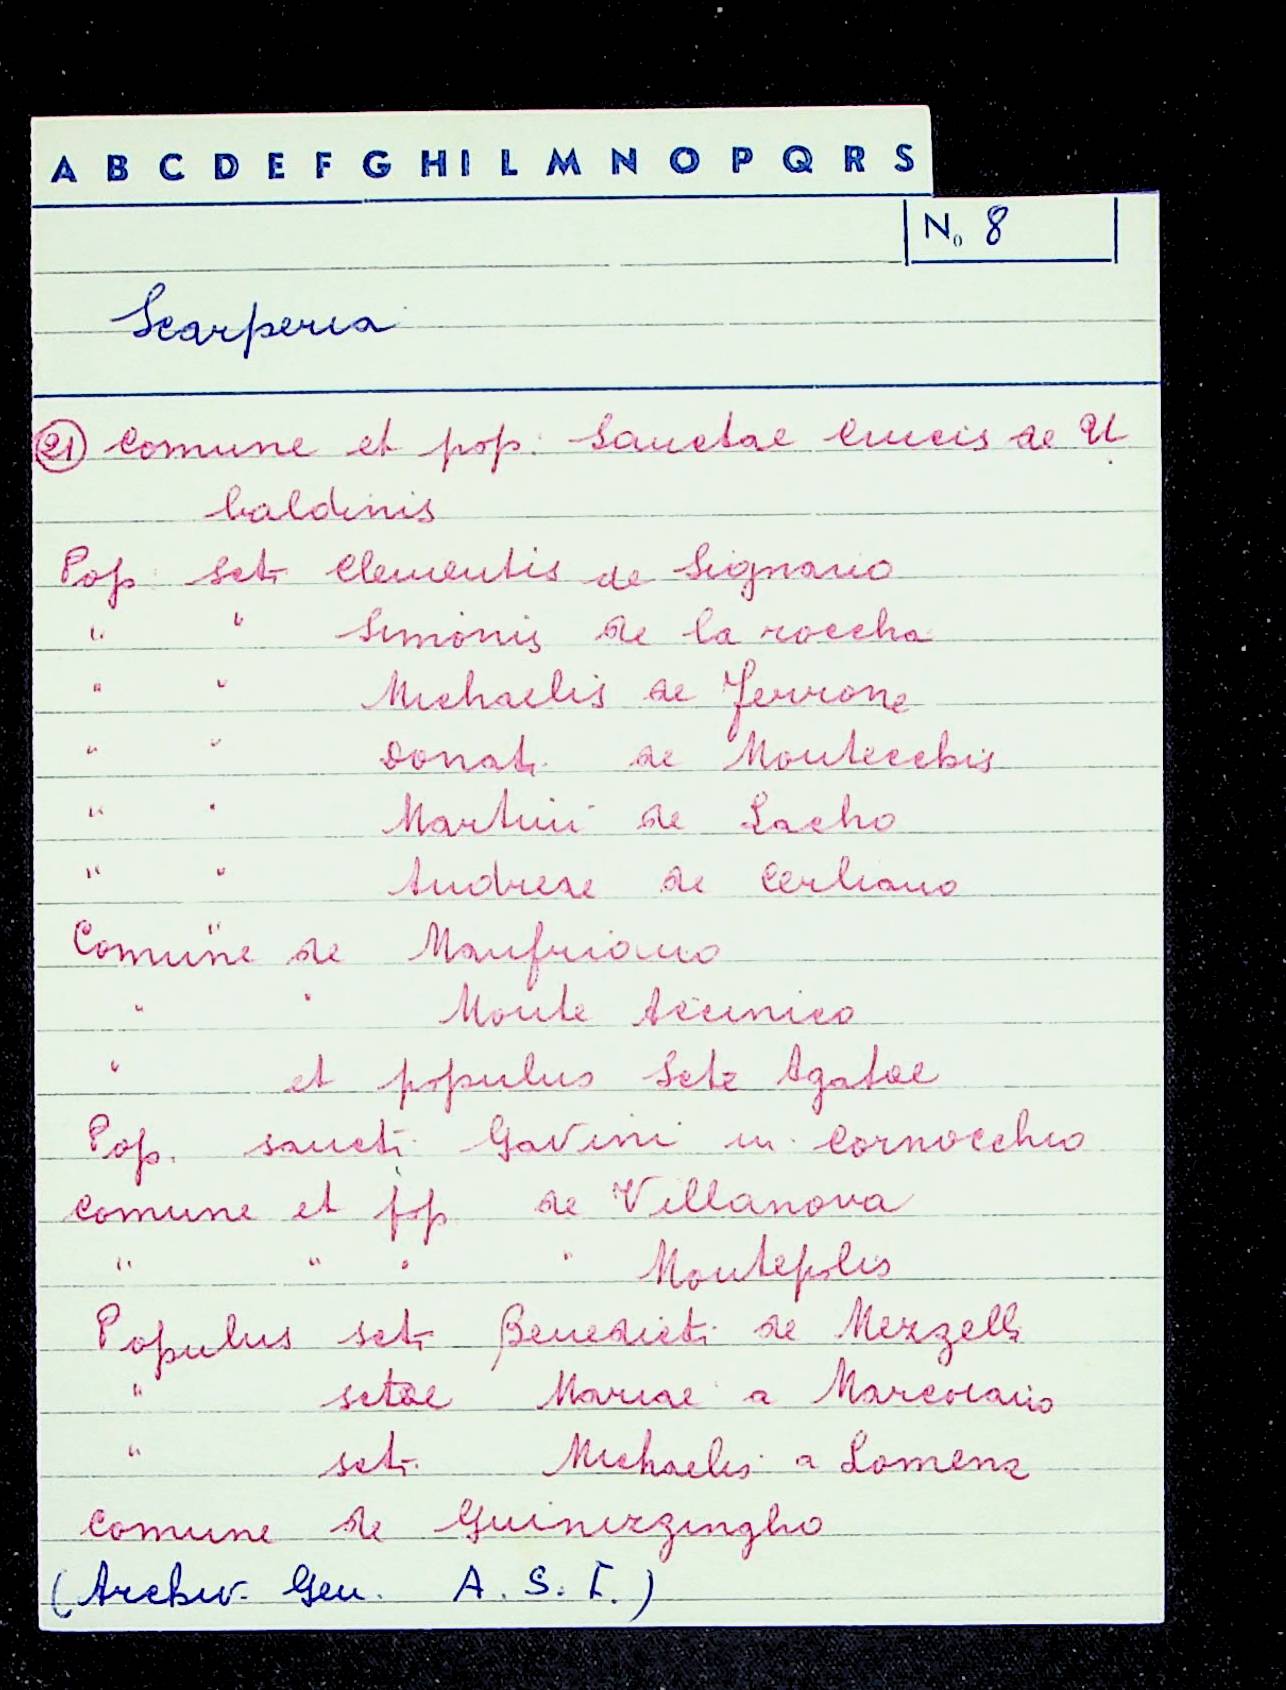 A B C D E F G H I L M N O P Q R S
No 8
Scarperia
21 Comune et pop. Sanctae Crucis de U
baldinis
Pop. Scti Clementis de Signano
" " Simonis de la roccha
" " Michaelis de Ferrone
" " Donati de Montecchis
" " Martini de Lacho
" " Andreae de Cerliano
Comune de Manfriano
" " Monte Accinico
" et populus Scte Agatae
Pop. sancti Gavini in Cornocchio
Comune et pop de Villanova
" " " " Montepolis
Populus scti Benedicti de Mezzelli
" sctae Mariae a Marcoiano
" scti Michaelis a Lomena
Comune de Guinizzingho
(Archiv. Gen. A. S. F.)